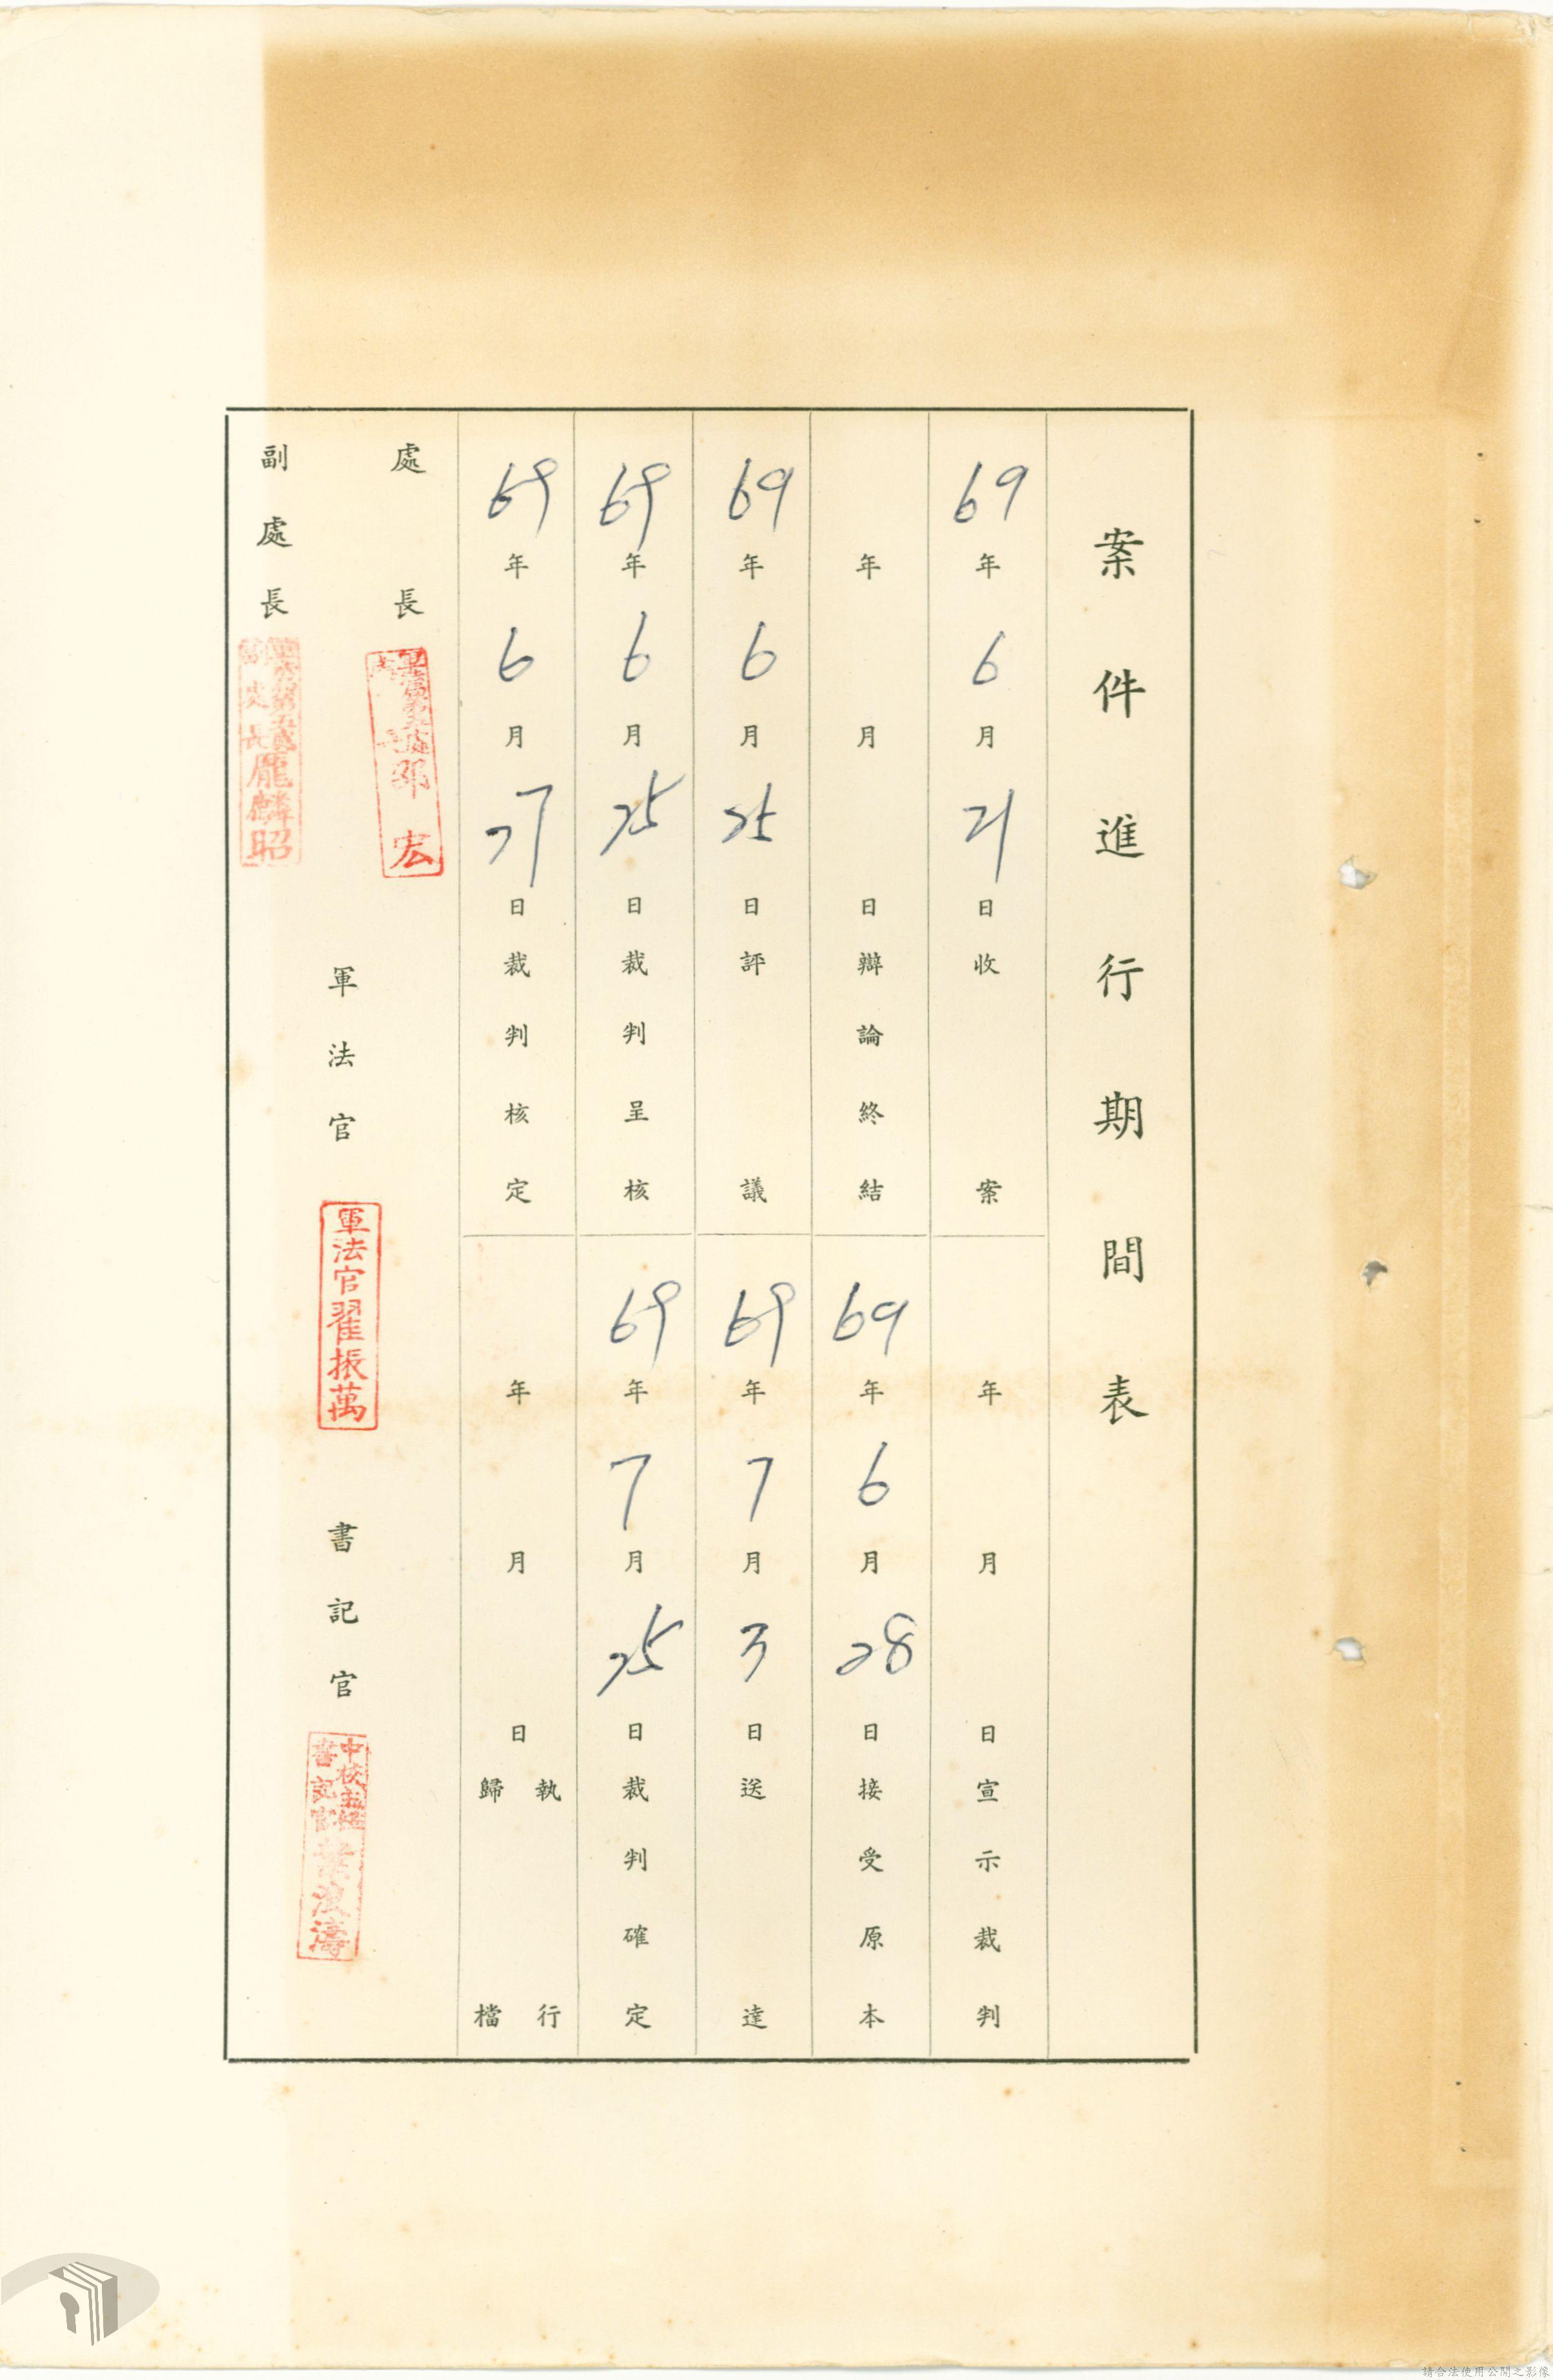 案件進行期間表
69年6月21日收案
年月日宣示裁判
年月日辯論終結
69年6月28日接受原本
69年6月25日評議
69年7月3日送達
69年6月25日裁判呈核
69年7月25日裁判確定
69年6月27日裁判核定
年月日執行
歸檔
處長
邵宏
副處長
龐麟昭
軍法官
軍法官翟振萬
書記官
中校主任
書記官
葉波濤
請合法使用公開之影像